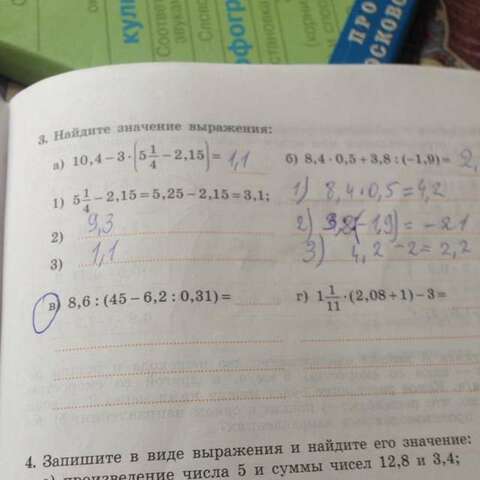 куль
Соответ
звукам
Слов
фогра
ПРО
СКОВО
3. Найдите значение выражения:
а) 10,4 − 3 · (5 1/4 − 2,15) = 1,1
1) 5 1/4 − 2,15 = 5,25 − 2,15 = 3,1;
2) 9,3
3) 1,1
б) 8,4 · 0,5 + 3,8 : (−1,9) = 2,
1) 8,4 · 0,5 = 4,2
3) 4,2 − 2 = 2,2
в) 8,6 : (45 − 6,2 : 0,31) =
г) 1 1/11 · (2,08 + 1) − 3 =
4. Запишите в виде выражения и найдите его значение:
а) произведение числа 5 и суммы чисел 12,8 и 3,4;